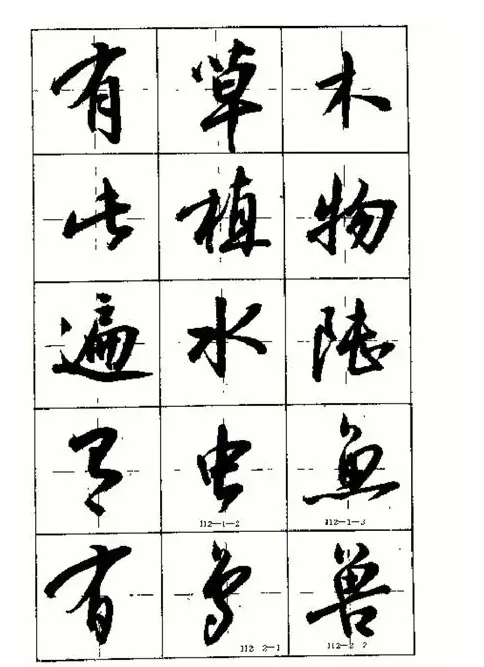 有草木
此植物
遍水陸
有虫鱼
112-1-2 112-1-3
有鸟兽
112 2-1 112-2-2